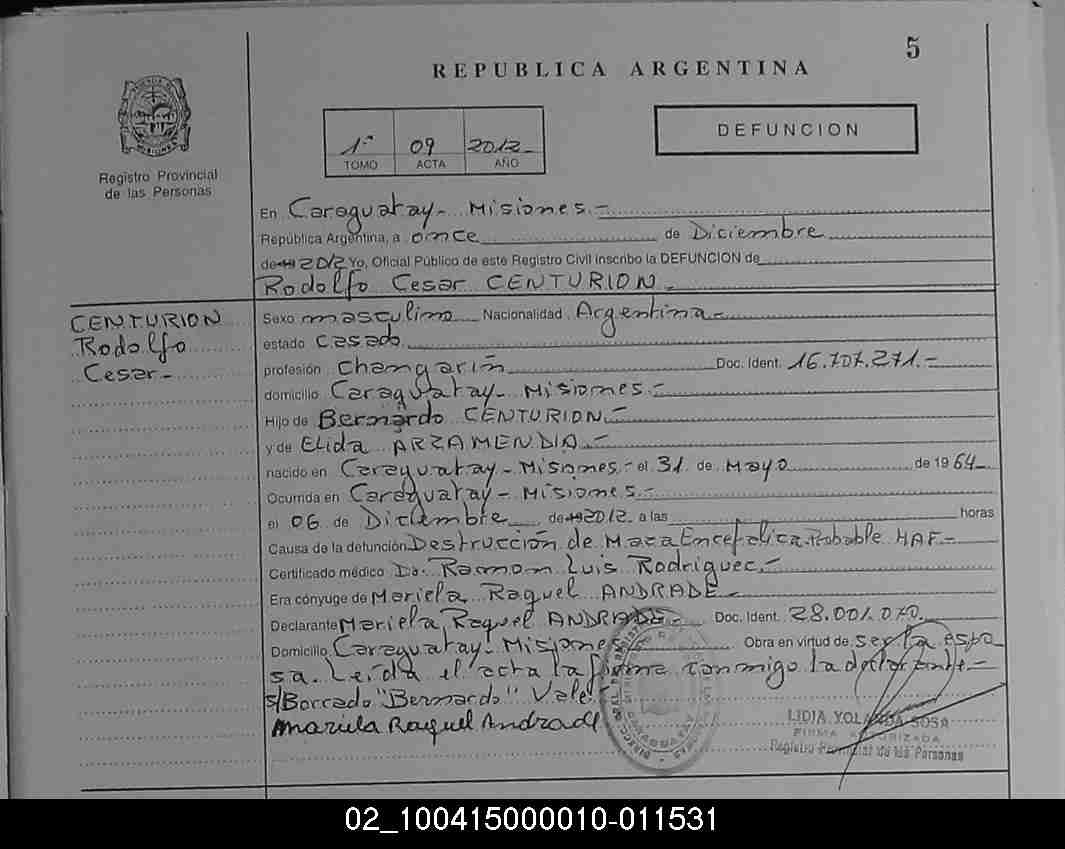 5
REPUBLICA ARGENTINA
1ª 09 2012
TOMO ACTA AÑO
DEFUNCION
Registro Provincial
de las Personas
En Caraguatay - Misiones.-
República Argentina, a once de Diciembre
de 19 2012 Yo, Oficial Público de este Registro Civil inscribo la DEFUNCION de
Rodolfo Cesar CENTURION.
CENTURION
Rodolfo
Cesar.-
Sexo masculino Nacionalidad Argentina.-
estado casado
profesión changarín Doc. Ident. 16.707.271.-
domicilio Caraguatay - Misiones.-
Hijo de Bernardo CENTURION.-
y de Elida ARZAMENDIA.-
nacido en Caraguatay - Misiones.- el 31 de Mayo de 1964
Ocurrida en Caraguatay - Misiones.-
el 06 de Diciembre de 19 2012. a las horas
Causa de la defunción Destrucción de Maza Encefalica. Probable HAF.-
Certificado médico Dr. Ramon Luis Rodriguez.-
Era cónyuge de Mariela Raquel ANDRADE.-
Declarante Mariela Raquel ANDRADE.- Doc. Ident. 28.001.070.
Domicilio Caraguatay - Misiones Obra en virtud de ser la espo
sa. Leída el acta la firma conmigo la declarante.-
s/Borrado "Bernardo" Vale
Mariela Raquel Andrade
LIDIA YOLANDA SOSA
FIRMA AUTORIZADA
Registro Provincial de las Personas
02_100415000010-011531